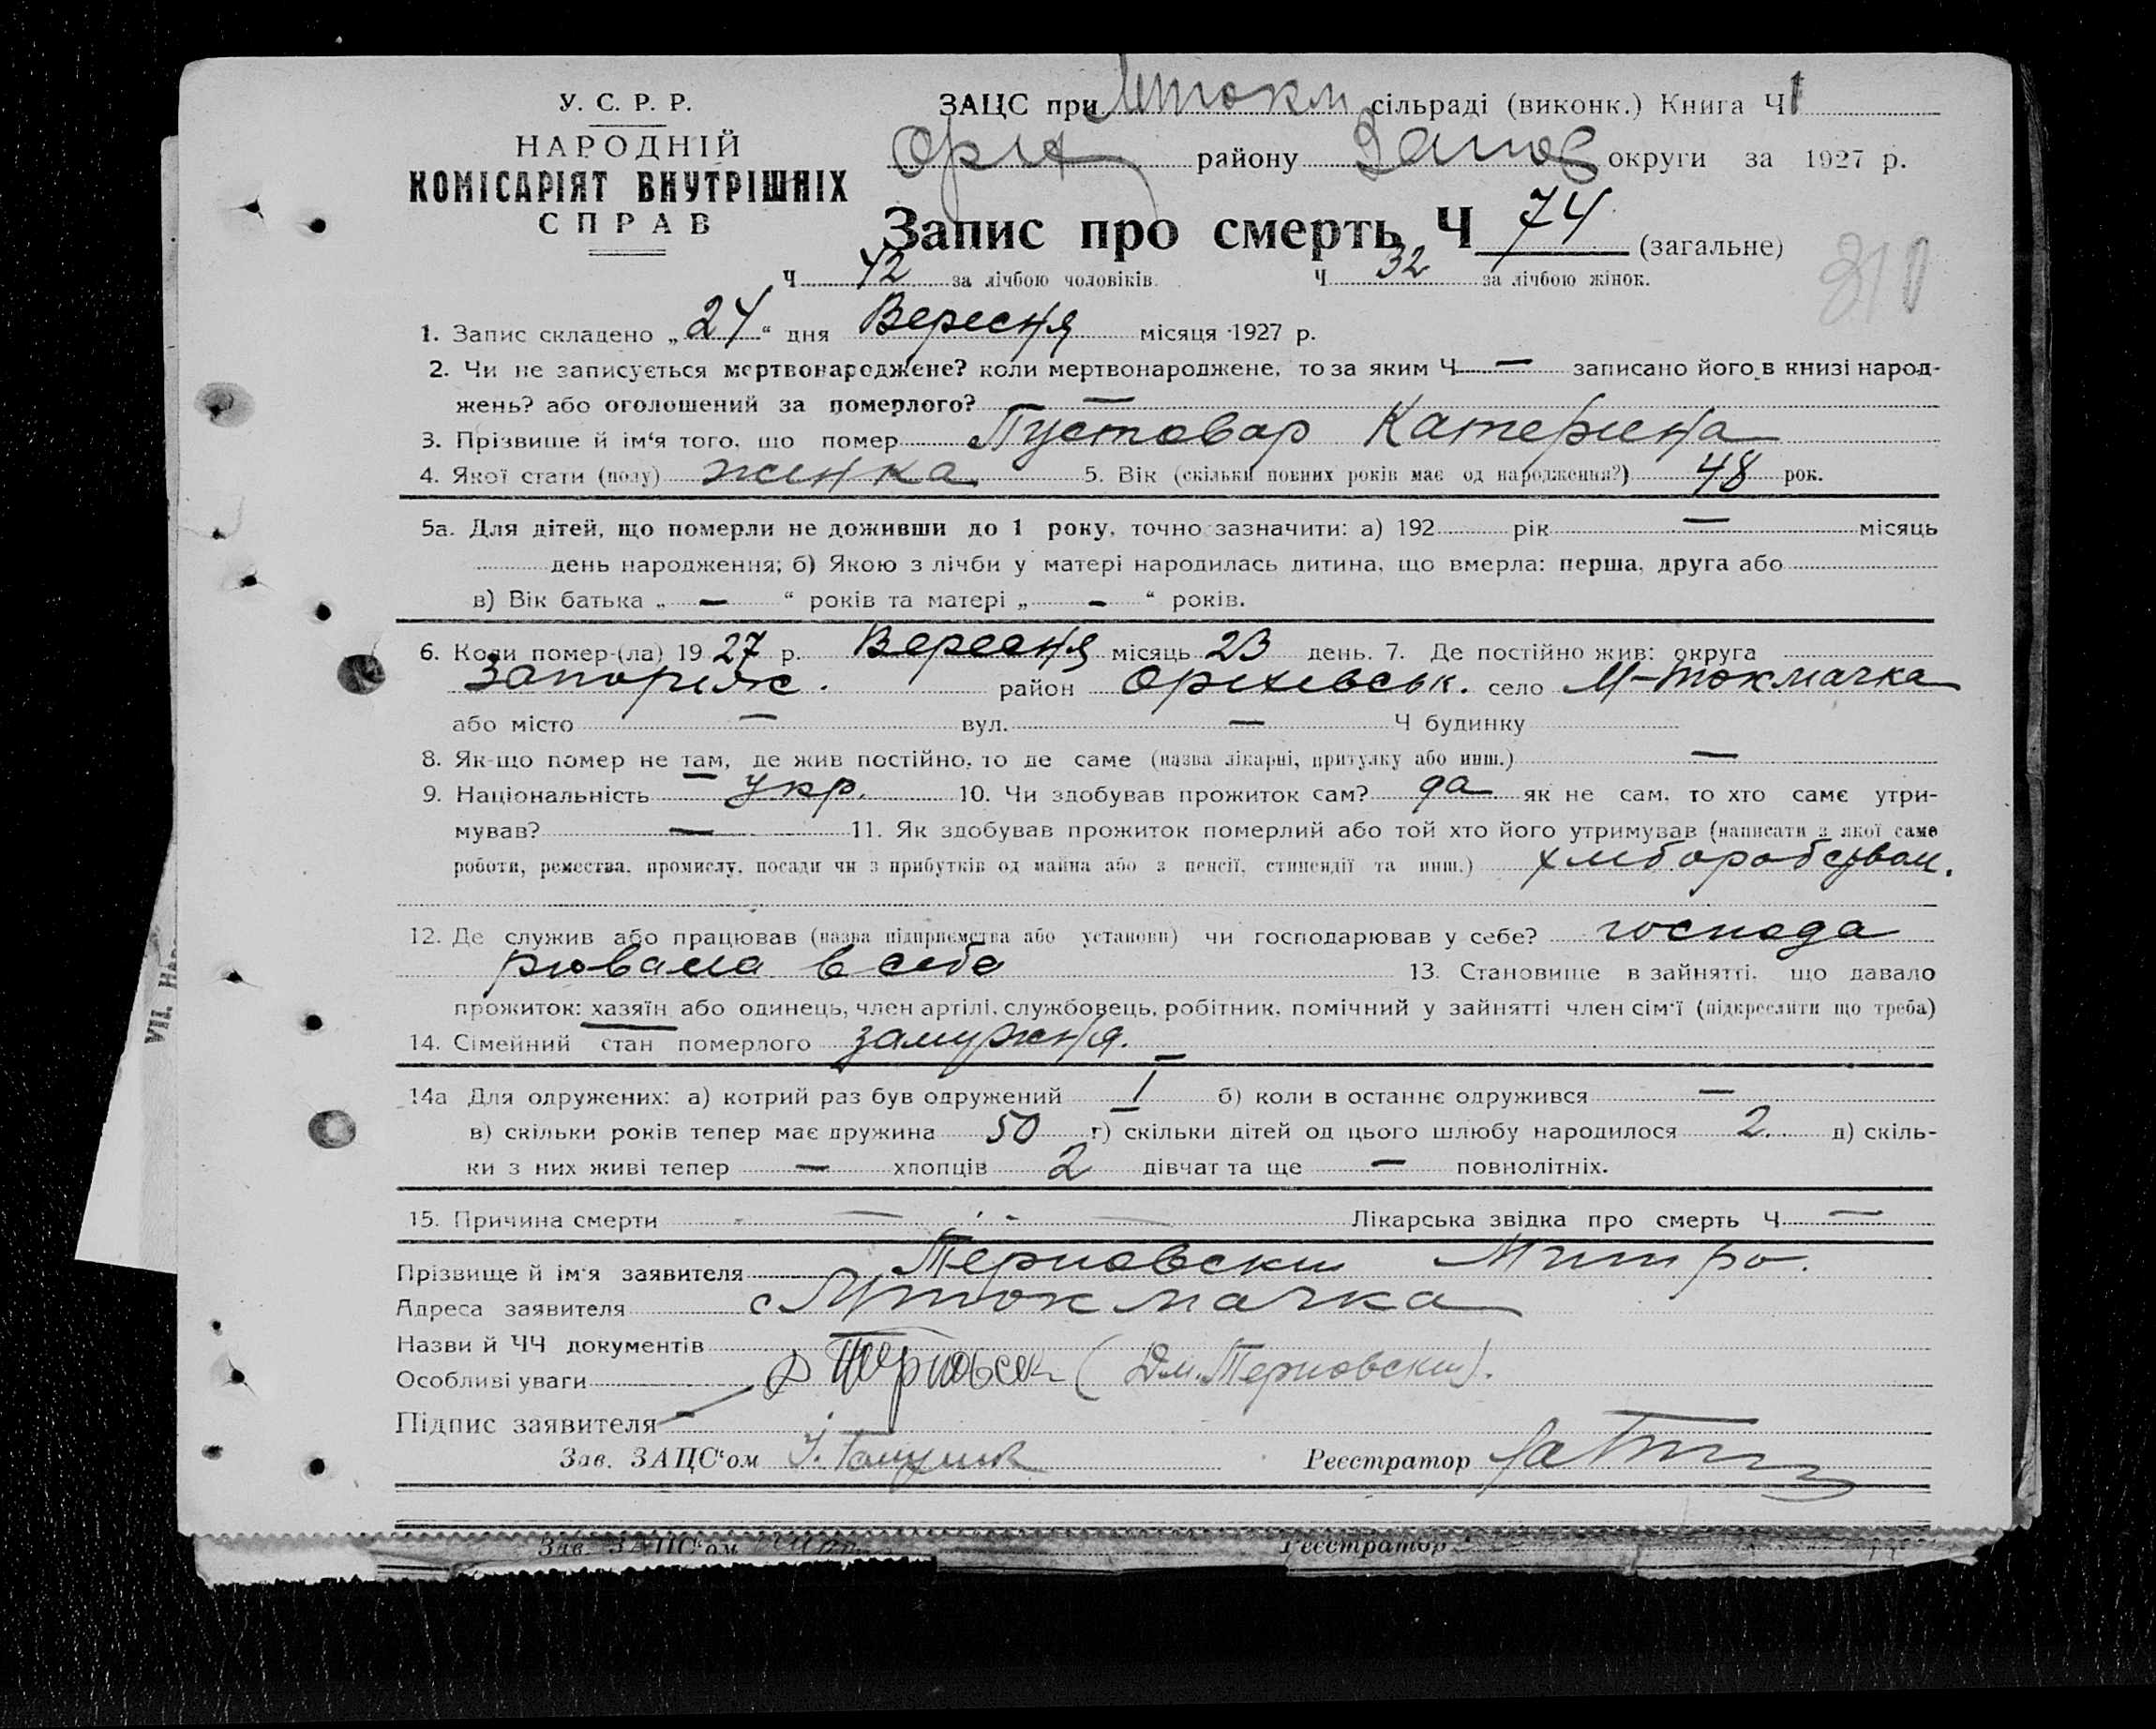 У. С. Р. Р.
НАРОДНІЙ
КОМІСАРІЯТ ВНУТРІШНІХ
СПРАВ
ЗАЦС при Мтокм сільраді (виконк.) Книга Ч 1
Оріх району Запоѣ округи за 1927 р.
Запис про смерть Ч 74 (загальне)
Ч 42 за лічбою чоловіків. Ч 32 за лічбою жінок.
310
1. Запис складено „24“ дня Вересня місяця 1927 р.
2. Чи не записується мертвонароджене? коли мертвонароджене, то за яким Ч — записано його в книзі народ-
жень? або оголошений за померлого? —
3. Прізвище й ім‘я того, що помер Пустовар Катерина
4. Якої стати (полу) жінка 5. Вік (скільки повних років має од народження?) 48 рок.
5а. Для дітей, що померли не доживши до 1 року, точно зазначити: а) 192 рік — місяць
день народження; б) Якою з лічби у матері народилась дитина, що вмерла: перша, друга або
в) Вік батька „ — “ років та матері „ — “ років.
6. Коли помер-(ла) 1927 р. Вересня місяць 23 день. 7. Де постійно жив: округа
Запоріж. район Оріхівськ. село М-Токмачка
або місто — вул. — Ч будинку
8. Як-що помер не там, де жив постійно, то де саме (назва лікарні, притулку або инш.) —
9. Національність укр. 10. Чи здобував прожиток сам? да як не сам, то хто саме утри-
мував? — 11. Як здобував прожиток померлий або той хто його утримував (написати з якої саме
роботи, ремества, промислу, посади чи з прибутків од майна або з пенсії, стипендії та инш.) хліборобством.
12. Де служив або працював (назва підприємства або установи) чи господарював у себе? господа
рювала в себе 13. Становище в зайнятті, що давало
прожиток: хазяїн або одинець, член артілі, службовець, робітник, помічний у зайнятті член сім‘ї (підкреслити що треба)
14. Сімейний стан померлого замужня.
14а Для одружених: а) котрий раз був одружений I б) коли в останнє одружився —
в) скільки років тепер має дружина 50 г) скільки дітей од цього шлюбу народилося 2 д) скіль-
ки з них живі тепер — хлопців 2 дівчат та ще — повнолітніх.
15. Причина смерти — Лікарська звідка про смерть Ч —
Прізвище й ім‘я заявителя Терновский Митро.
Адреса заявителя с Мтокмачка
Назви й ЧЧ документів
Особливі уваги Д Терновск (Дм. Терновский).
Підпис заявителя
Зав. ЗАЦС‘ом Реєстратор
Зав. ЗАЦС‘ом Реєстратор